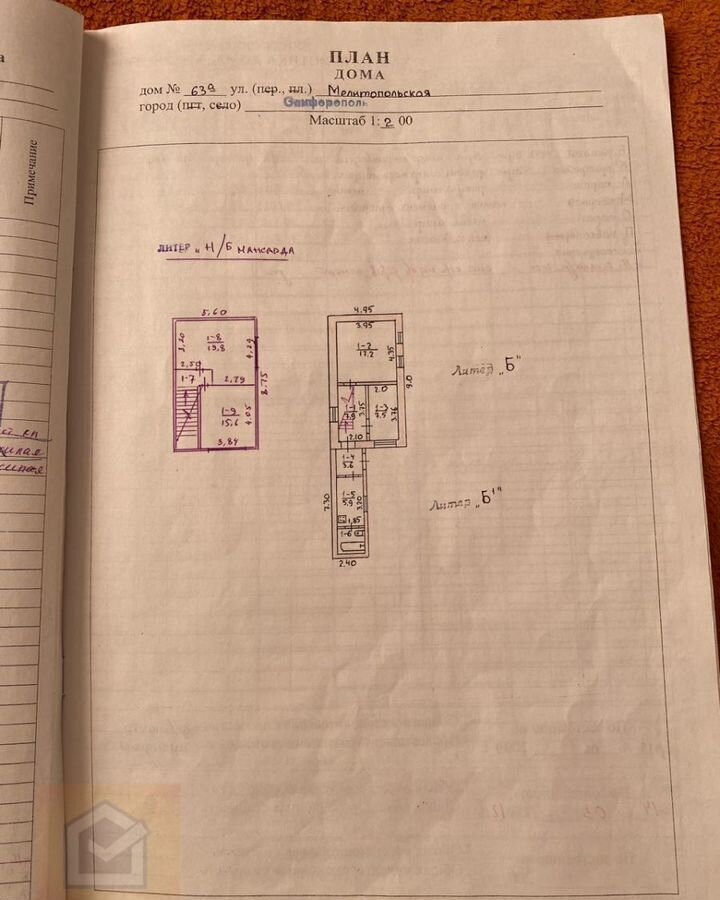 ПЛАН
ДОМА
дом № 63а ул. (пер., пл.) Мелитопольская
город (пгт, село) Симферополь
Масштаб 1: 2 00
Примечание
ЛИТЕР „Н/Б МАНСАРДА
5,60
3,20
1-8
19,8
4,29
2,50
1-7
2,79
8,75
1-9
15,6
4,05
3,84
4,95
3,95
1-2
17,2
4,35
9,0
Литер „Б"
2,0
3,75
1-3
7,5
3,76
2,10
1-4
3,6
7,30
1-5
5,9
3,20
1,85
1-6
2,40
Литер „Б¹"